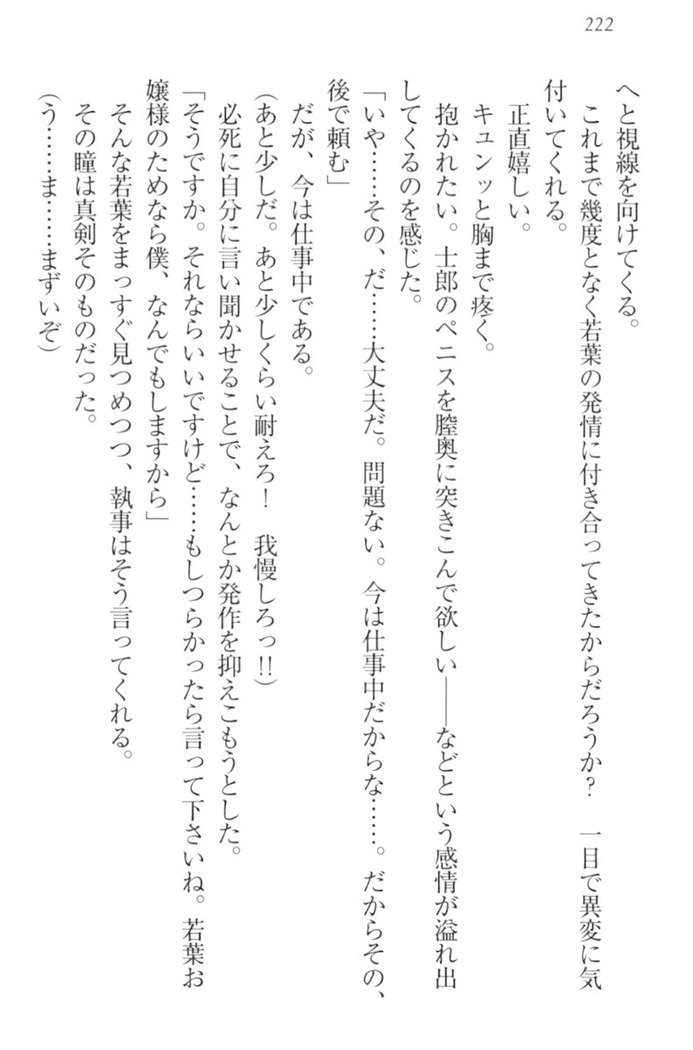 222
へと視線を向けてくる。
これまで幾度となく若葉の発情に付き合ってきたからだろうか？　一目で異変に気
付いてくれる。
正直嬉しい。
キュンッと胸まで疼く。
抱かれたい。士郎のペニスを膣奥に突きこんで欲しい――などという感情が溢れ出
してくるのを感じた。
「いや……その、だ……大丈夫だ。問題ない。今は仕事中だからな……。だからその、
後で頼む」
だが、今は仕事中である。
（あと少しだ。あと少しくらい耐えろ！　我慢しろっ!!）
必死に自分に言い聞かせることで、なんとか発作を抑えこもうとした。
「そうですか。それならいいですけど……もしつらかったら言って下さいね。若葉お
嬢様のためなら僕、なんでもしますから」
そんな若葉をまっすぐ見つめつつ、執事はそう言ってくれる。
その瞳は真剣そのものだった。
（う……ま……まずいぞ）